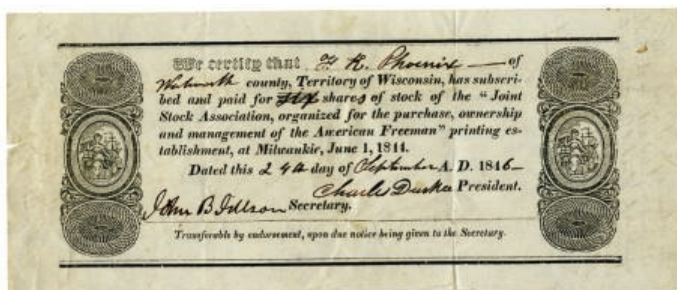 We certify that F. K. Phoenix — of
Walworth county, Territory of Wisconsin, has subscri-
bed and paid for shares of stock of the "Joint
Stock Association, organized for the purchase, ownership
and management of the American Freeman" printing es-
tablishment, at Milwaukie, June 1, 1844.
Dated this 24th day of September A. D. 1846—
Charles Durkee President.
John B Secretary.
Transferable by endorsement, upon due notice being given to the Secretary.